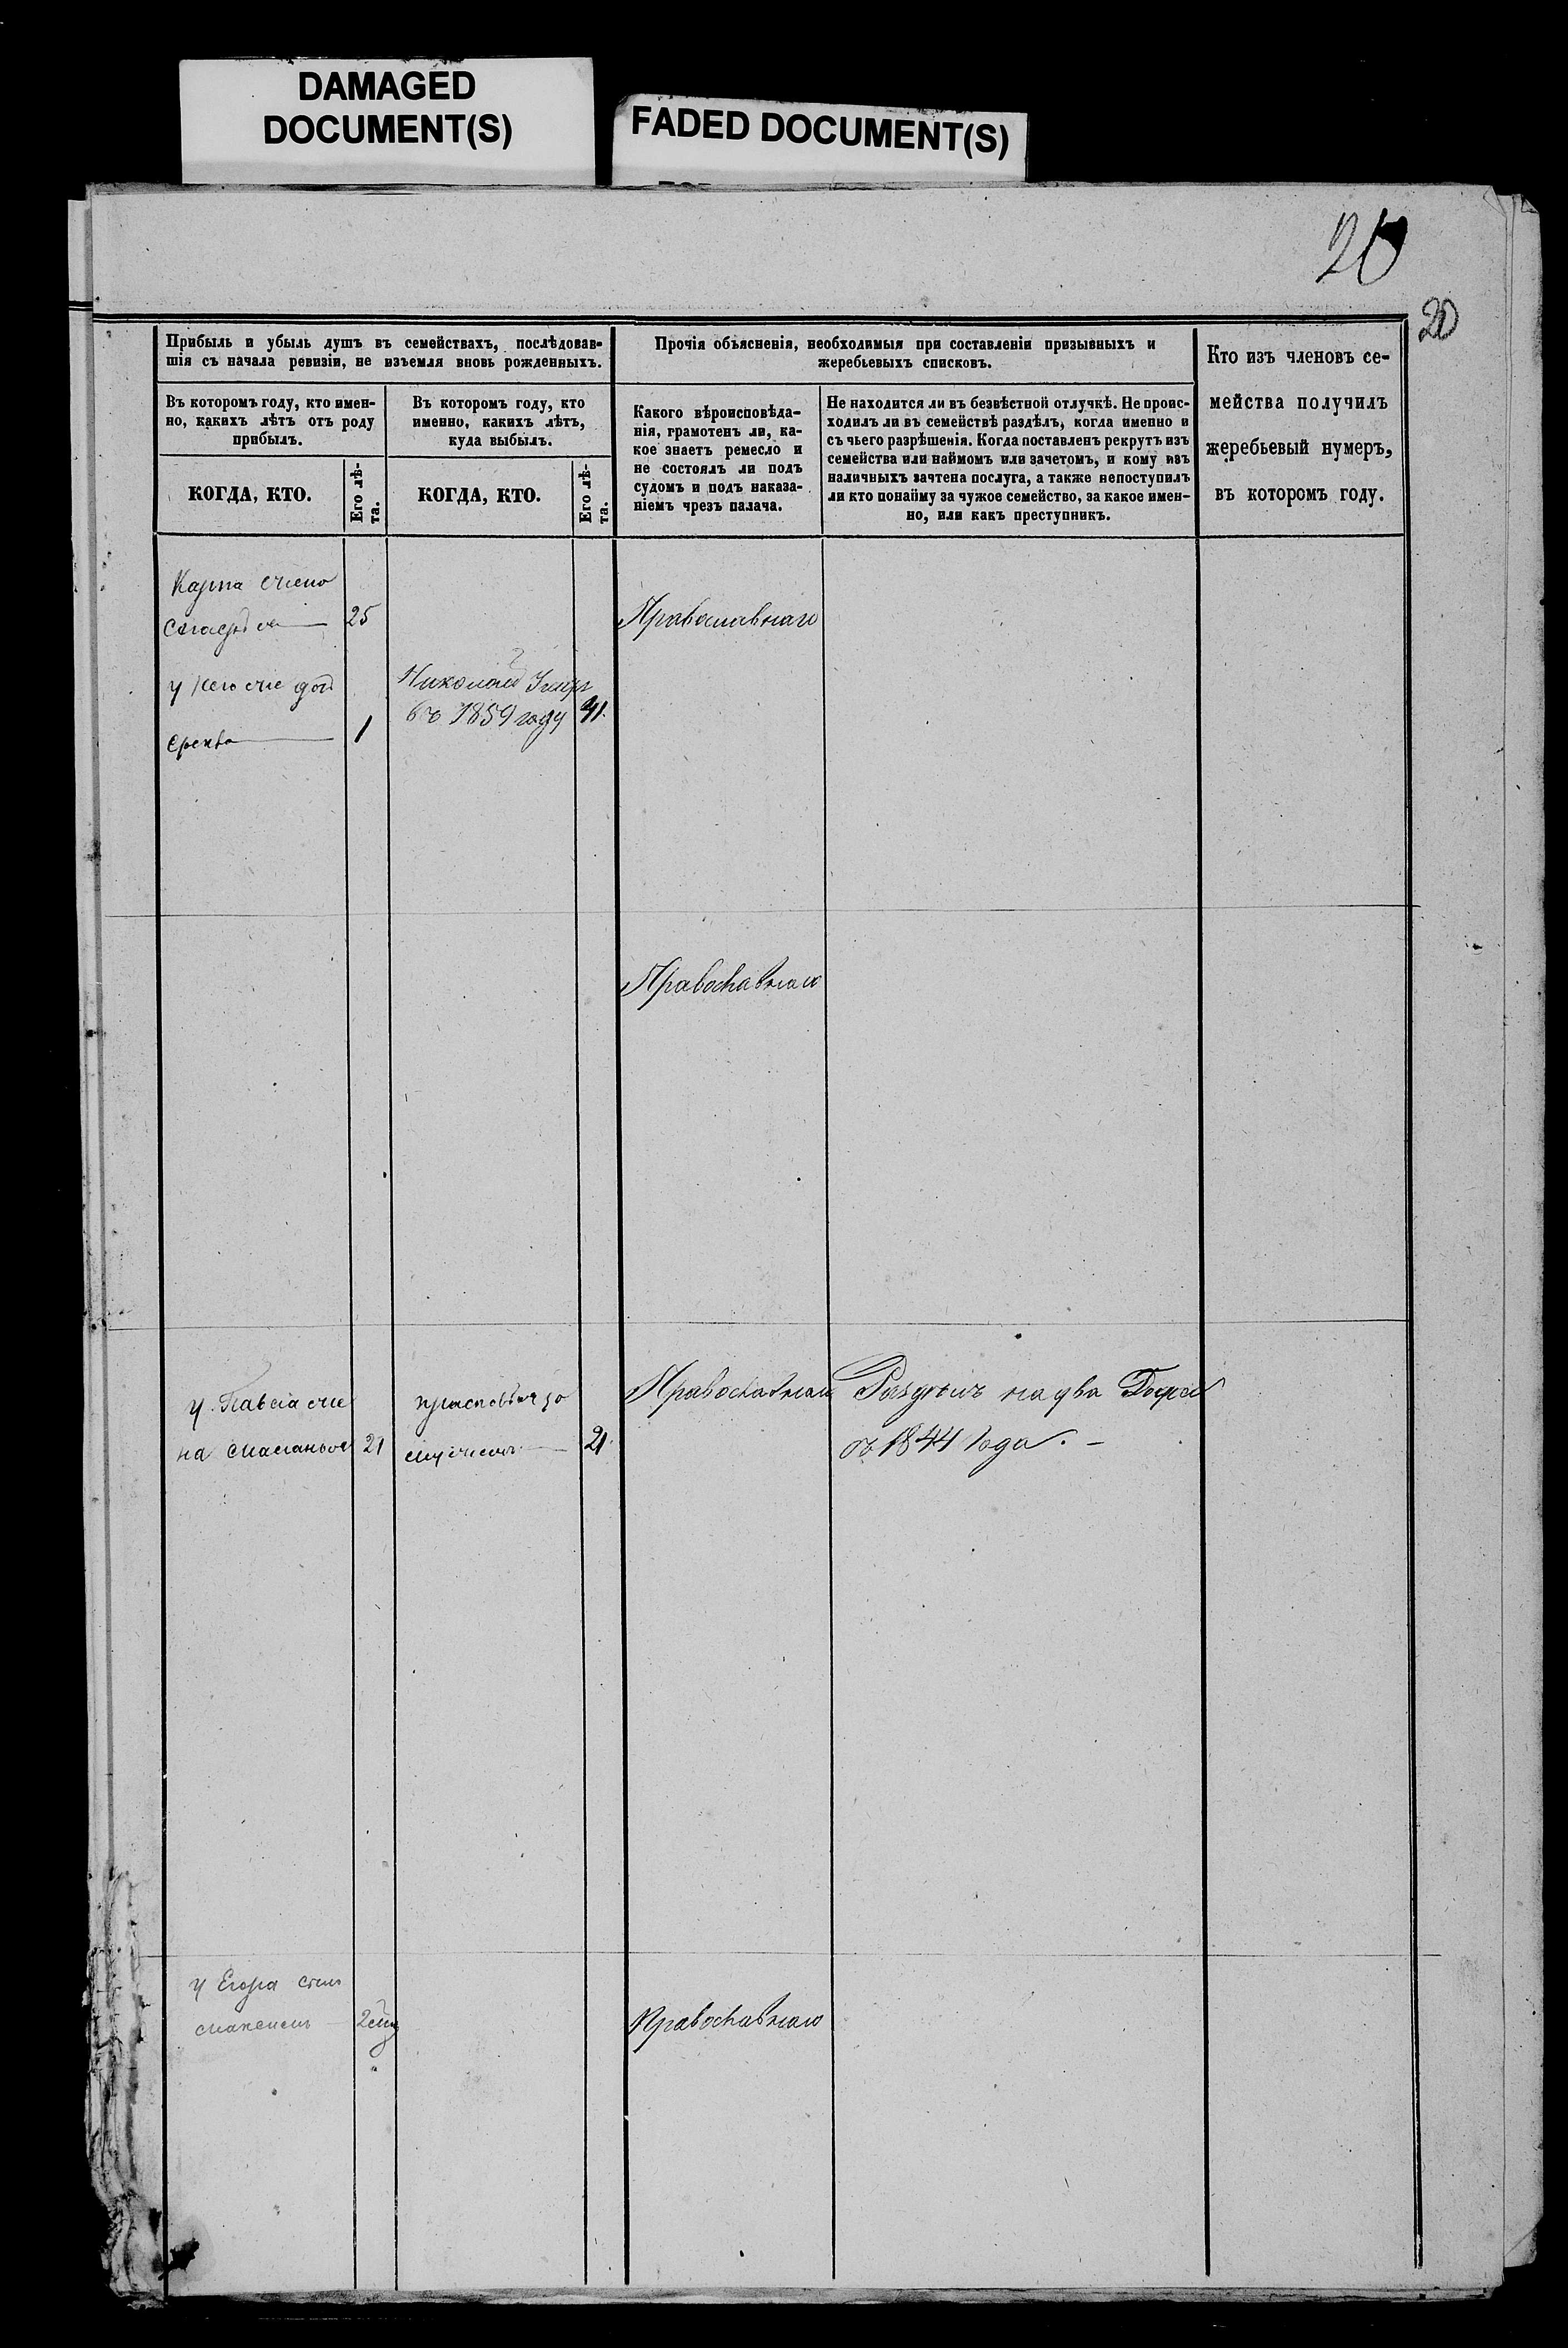 DAMAGED
DOCUMENT(S)
FADED DOCUMENT(S)
20
20
Прибыль и убыль душъ въ семействахъ, послѣдовав-
шія съ начала ревизіи, не изъемля вновь рожденныхъ.
Прочія объясненія, необходимыя при составленіи призывныхъ и
жеребьевыхъ списковъ.
Кто изъ членовъ се-
мейства получилъ
жеребьевый нумеръ,
въ которомъ году.
Въ которомъ году, кто имен-
но, какихъ лѣтъ отъ роду
прибылъ.
Въ которомъ году, кто
именно, какихъ лѣтъ,
куда выбылъ.
Какого вѣроисповѣда-
нія, грамотенъ ли, ка-
кое знаетъ ремесло и
не состоялъ ли подъ
судомъ и подъ наказа-
ніемъ чрезъ палача.
Не находится ли въ безвѣстной отлучкѣ. Не проис-
ходилъ ли въ семействѣ раздѣлъ, когда именно и
съ чьего разрѣшенія. Когда поставленъ рекрутъ изъ
семейства или наймомъ или зачетомъ, и кому изъ
наличныхъ зачтена послуга, а также непоступилъ
ли кто понайму за чужое семейство, за какое имен-
но, или какъ преступникъ.
КОГДА, КТО.
Его лѣ-
та.
КОГДА, КТО.
Его лѣ-
та.
Карпа
25
Православнаго
у него
1
Николай
въ 1859 году 41.
Православнаго
у Павела
на 21
21.
Православнаго
на два
съ 1844 года. –
у Егора
Православнаго